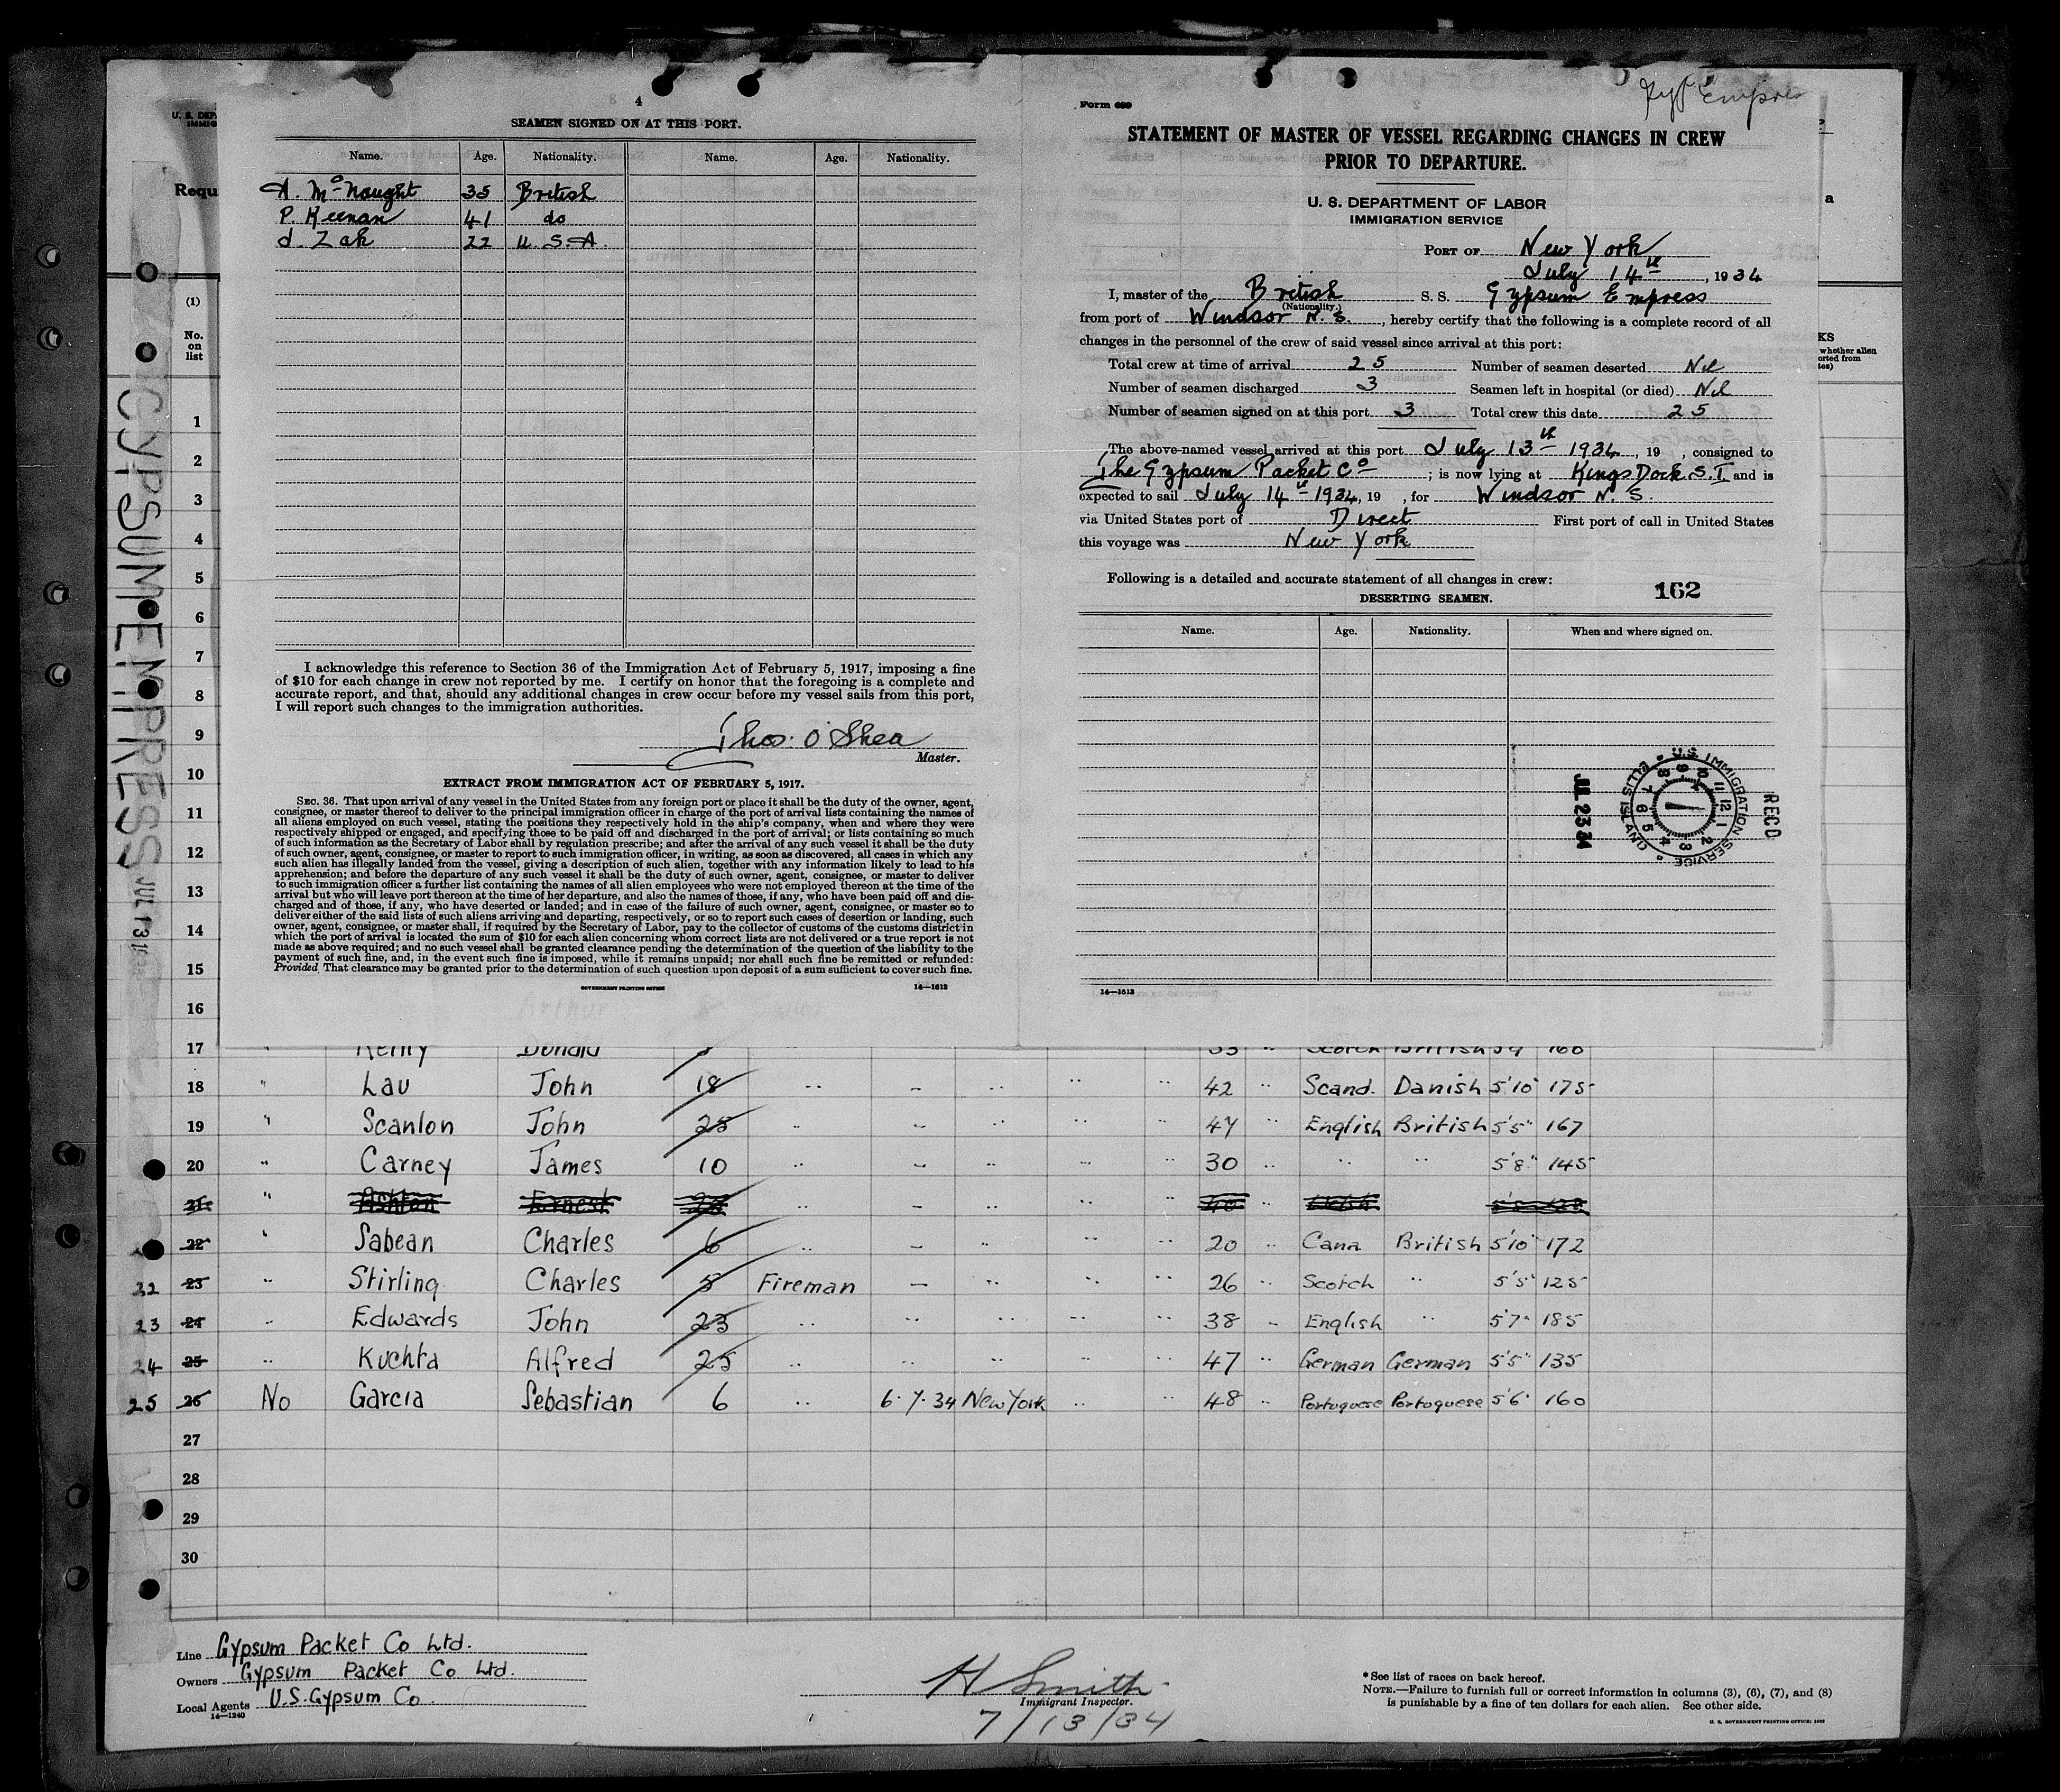 4
SEAMEN SIGNED ON AT THIS PORT.
Name. Age. Nationality. Name. Age. Nationality.
A. McNaught 35 British
P. Keenan 41 do
J. Zak 22 U.S.A.
I acknowledge this reference to Section 36 of the Immigration Act of February 5, 1917, imposing a fine
of $10 for each change in crew not reported by me. I certify on honor that the foregoing is a complete and
accurate report, and that, should any additional changes in crew occur before my vessel sails from this port,
I will report such changes to the immigration authorities.
Thos. O'Shea
Master.
EXTRACT FROM IMMIGRATION ACT OF FEBRUARY 5, 1917.
SEC. 36. That upon arrival of any vessel in the United States from any foreign port or place it shall be the duty of the owner, agent,
consignee, or master thereof to deliver to the principal immigration officer in charge of the port of arrival lists containing the names of
all aliens employed on such vessel, stating the positions they respectively hold in the ship's company, when and where they were
respectively shipped or engaged, and specifying those to be paid off and discharged in the port of arrival; or lists containing so much
of such information as the Secretary of Labor shall by regulation prescribe; and after the arrival of any such vessel it shall be the duty
of such owner, agent, consignee, or master to report to such immigration officer, in writing, as soon as discovered, all cases in which any
such alien has illegally landed from the vessel, giving a description of such alien, together with any information likely to lead to his
apprehension; and before the departure of any such vessel it shall be the duty of such owner, agent, consignee, or master to deliver
to such immigration officer a further list containing the names of all alien employees who were not employed thereon at the time of the
arrival but who will leave port thereon at the time of her departure, and also the names of those, if any, who have been paid off and dis-
charged and of those, if any, who have deserted or landed; and in case of the failure of such owner, agent, consignee, or master so to
deliver either of the said lists of such aliens arriving and departing, respectively, or so to report such cases of desertion or landing, such
owner, agent, consignee, or master shall, if required by the Secretary of Labor, pay to the collector of customs of the customs district in
which the port of arrival is located the sum of $10 for each alien concerning whom correct lists are not delivered or a true report is not
made as above required; and no such vessel shall be granted clearance pending the determination of the question of the liability to the
payment of such fine, and, in the event such fine is imposed, while it remains unpaid; nor shall such fine be remitted or refunded:
Provided, That clearance may be granted prior to the determination of such question upon deposit of a sum sufficient to cover such fine.
GOVERNMENT PRINTING OFFICE 14—1613
Form 689
Gyp Empre
STATEMENT OF MASTER OF VESSEL REGARDING CHANGES IN CREW
PRIOR TO DEPARTURE.
U. S. DEPARTMENT OF LABOR
IMMIGRATION SERVICE
PORT OF New York
July 14th, 1934
I, master of the British S. S. Gypsum Empress
(Nationality.)
from port of Windsor N. S., hereby certify that the following is a complete record of all
changes in the personnel of the crew of said vessel since arrival at this port:
Total crew at time of arrival 25 Number of seamen deserted Nil
Number of seamen discharged 3 Seamen left in hospital (or died) Nil
Number of seamen signed on at this port 3 Total crew this date 25
The above-named vessel arrived at this port July 13th 1934, 19 , consigned to
The Gypsum Packet Co; is now lying at Kings Dock S.I. and is
expected to sail July 14th 1934, 19 , for Windsor N. S.
via United States port of Direct First port of call in United States
this voyage was New York
Following is a detailed and accurate statement of all changes in crew:
162
DESERTING SEAMEN.
Name. Age. Nationality. When and where signed on.
REC'D
U.S. IMMIGRATION SERVICE
ELLIS ISLAND
JUL 23 34
14—1613
U. S. DEP
IMMIG
Requ
(1)
No.
on
list
a
KS
whether alien
orted from
tes)
GYPSUM EMPRESS JUL 13
1
2
3
4
5
6
7
8
9
10
11
12
13
14
15
16
17 Kenny Donald 33 Scotch British 5'9 160
18 " Lau John 18 42 Scand. Danish 5'10" 175
19 " Scanlon John 25 47 English British 5'5" 167
20 " Carney James 10 30 " " 5'8" 145
21 " Ashton Ernest
22 " Sabean Charles 6 20 Cana British 5'10" 172
22 23 " Stirling Charles 5 Fireman 26 Scotch " 5'5" 125
23 24 " Edwards John 23 38 English " 5'7" 185
24 25 " Kuchta Alfred 25 47 German German 5'5" 135
25 26 No Garcia Sebastian 6 " 6.7.34 New York 48 Portuguese Portuguese 5'6" 160
27
28
29
30
Line Gypsum Packet Co Ltd.
Owners Gypsum Packet Co Ltd.
Local Agents U.S. Gypsum Co.
14—1240
H Smith
Immigrant Inspector.
7/13/34
* See list of races on back hereof.
NOTE.—Failure to furnish full or correct information in columns (3), (6), (7), and (8)
is punishable by a fine of ten dollars for each alien. See other side.
U. S. GOVERNMENT PRINTING OFFICE: 1933